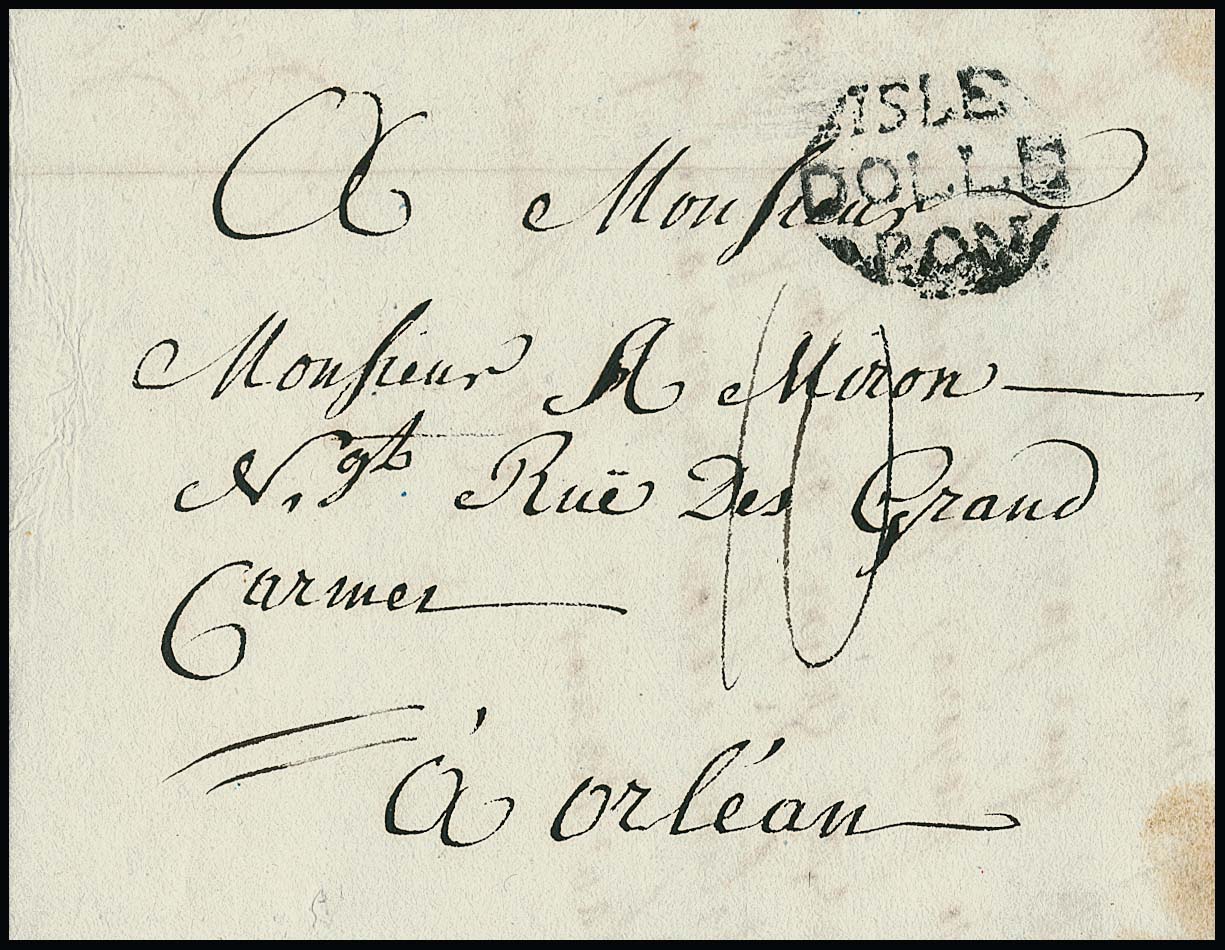 ISLE
DOLLE
RON
A Monsieur
Monsieur A Miron
N.gt Ruë Des Grand
Carmes
10
à orléan